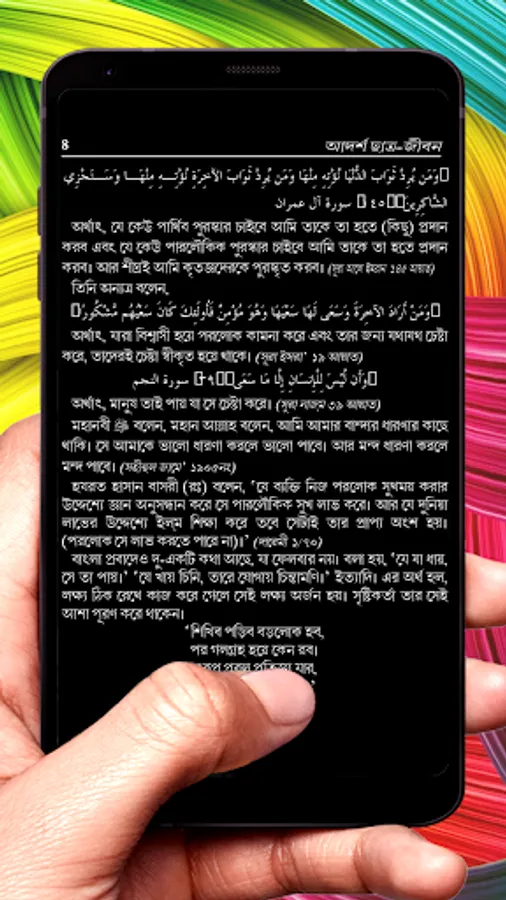 8 আদর্শ ছাত্র-জীবন
وَمَن يُرِدْ ثَوَابَ الدُّنْيَا نُؤْتِهِ مِنْهَا وَمَن يُرِدْ ثَوَابَ الآخِرَةِ نُؤْتِهِ مِنْهَا وَسَنَجْزِي
الشَّاكِرِينَ سورة آل عمران
অর্থাৎ, যে কেউ পার্থিব পুরস্কার চাইবে আমি তাকে তা হতে (কিছু) প্রদান
করব এবং যে কেউ পারলৌকিক পুরস্কার চাইবে আমি তাকে তা হতে প্রদান
করব। আর শীঘ্রই আমি কৃতজ্ঞদেরকে পুরস্কৃত করব। (সূরা আলে ইমরান ১৪৫ আয়াত)
তিনি অন্যত্র বলেন,
وَمَنْ أَرَادَ الآخِرَةَ وَسَعَى لَهَا سَعْيَهَا وَهُوَ مُؤْمِنٌ فَأُولَئِكَ كَانَ سَعْيُهُم مَّشْكُورًا
অর্থাৎ, যারা বিশ্বাসী হয়ে পরলোক কামনা করে এবং তার জন্য যথাযথ চেষ্টা
করে, তাদেরই চেষ্টা স্বীকৃত হয়ে থাকে। (সূরা ইসরা' ১৯ আয়াত)
وَأَن لَّيْسَ لِلْإِنسَانِ إِلَّا مَا سَعَى سورة النجم
অর্থাৎ, মানুষ তাই পায় যা সে চেষ্টা করে। (সূরা নাজম ৩৯ আয়াত)
মহানবী ﷺ বলেন, মহান আল্লাহ বলেন, আমি আমার বান্দার ধারণার কাছে
থাকি। সে আমাকে ভালো ধারণা করলে ভালো পাবে। আর মন্দ ধারণা করলে
মন্দ পাবে। (সহীহুল জামে' ১৯০৫নং)
হযরত হাসান বাসরী (রঃ) বলেন, 'যে ব্যক্তি নিজ পরলোক সুখময় করার
উদ্দেশ্যে জ্ঞান অনুসন্ধান করে সে পারলৌকিক সুখ লাভ করে। আর যে দুনিয়া
লাভের উদ্দেশ্যে ইল্‌ম শিক্ষা করে তবে সেটাই তার প্রাপ্য অংশ হয়।
(পরলোকে সে লাভ করতে পারে না)।' (দারেমী ১/৭০)
বাংলা প্রবাদেও দু-একটি কথা আছে, যা ফেলবার নয়। বলা হয়, 'যে যা ধায়,
সে তা পায়।' 'যে খায় চিনি, তারে যোগায় চিন্তামণি।' ইত্যাদি। এর অর্থ হল,
লক্ষ্য ঠিক রেখে কাজ করে গেলে সেই লক্ষ্য অর্জন হয়। সৃষ্টিকর্তা তার সেই
আশা পূরণ করে থাকেন।
'শিখিব পড়িব বড়লোক হব,
পর গলগ্রহ হয়ে কেন রব।